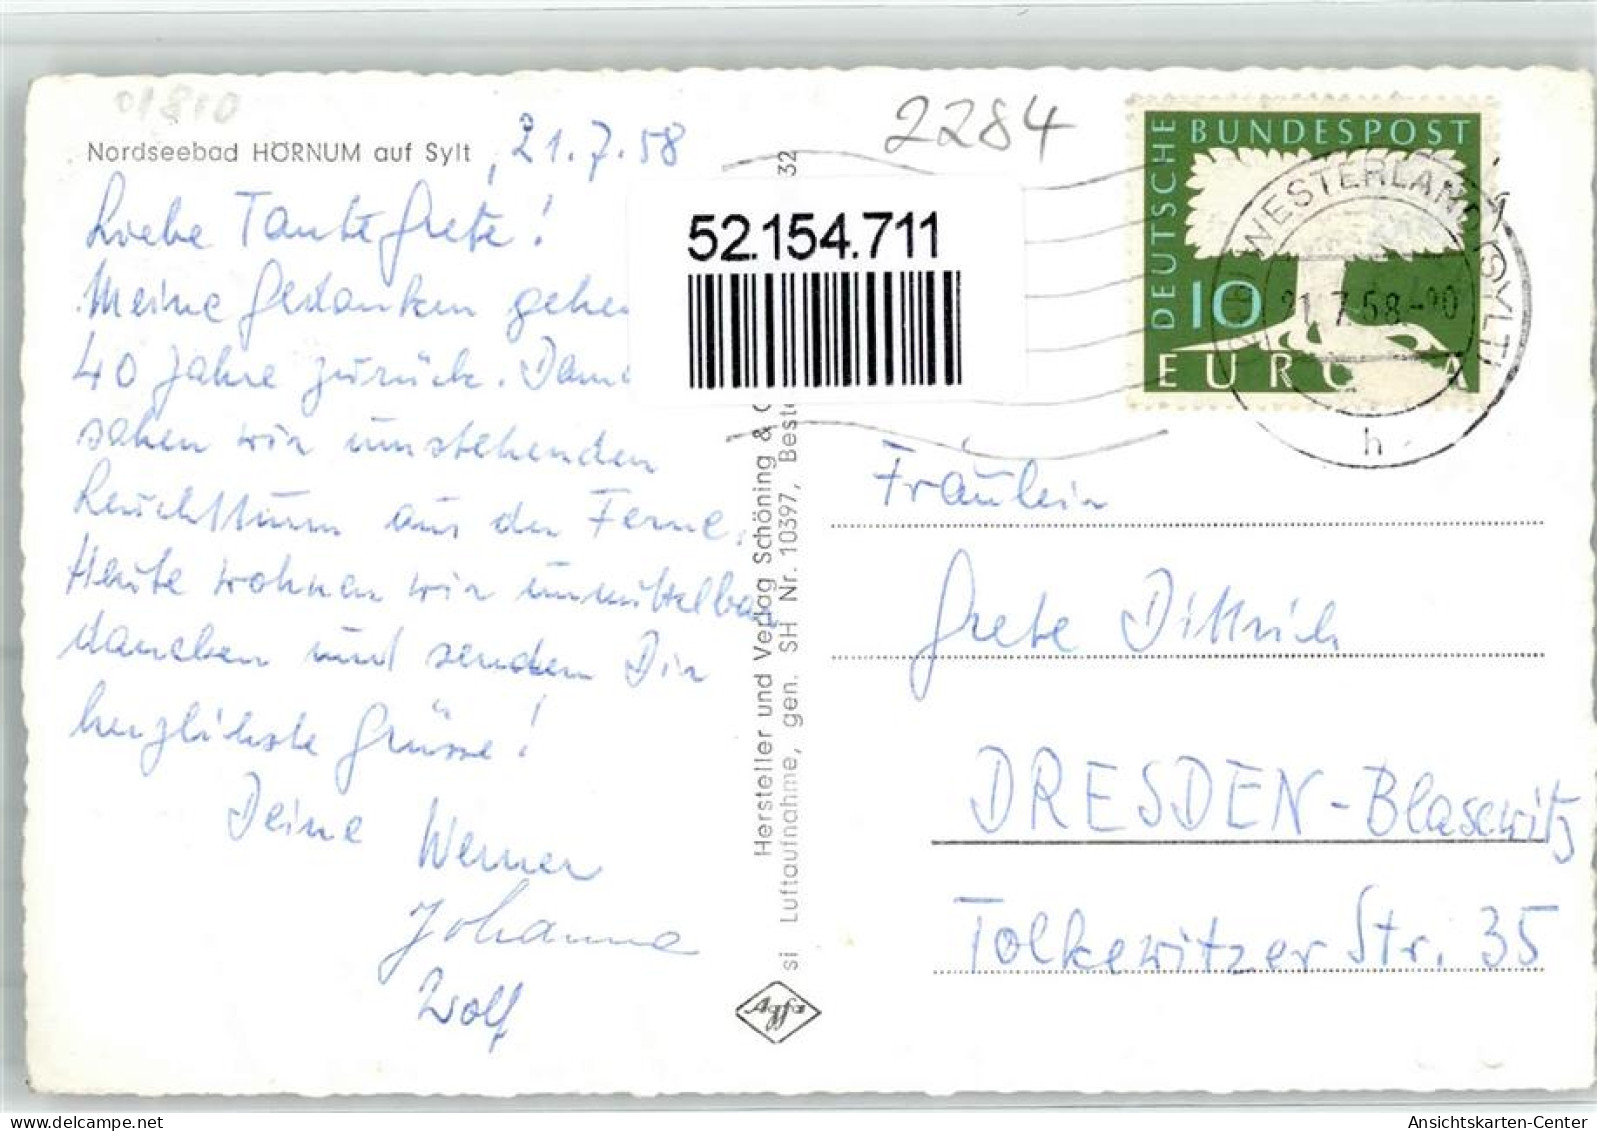 01810
Nordseebad HÖRNUM auf Sylt
, 21.7.58
Liebe Tante Grete!
Meine Gedanken gehe
40 Jahre zurück. Dam
sahen wir umstehenden
Leuchtturm aus der Ferne.
Heute wohnen wir unmittelbar
daneben und senden Dir
herzlichste Grüsse!
Deine Werner
Johanna
Wolf
52.154.711
Hersteller und Verlag Schöning & C
si Luftaufnahme, gen. SH Nr. 10397, Beste
32
Agfa
2284
DEUTSCHE BUNDESPOST
10
EUROPA
WESTERLAND (SYLT)
21.7.58-20
h
Fräulein
Grete Dittrich
DRESDEN-Blasewitz
Tolkewitzer Str. 35
Ansichtskarten-Center